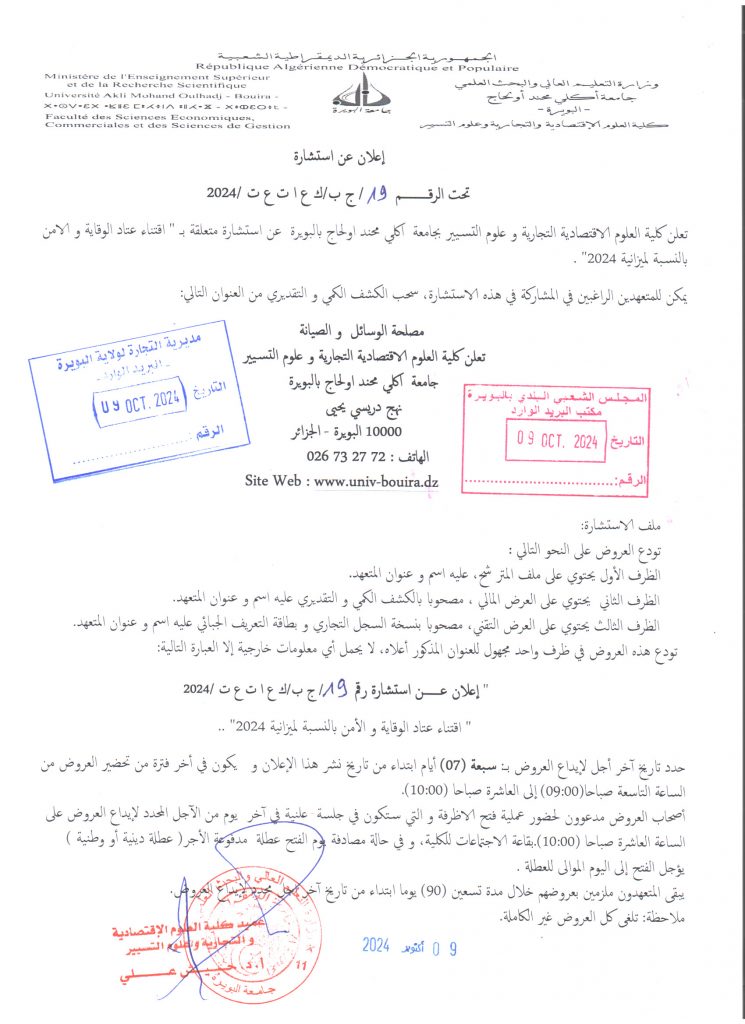 الجمهورية الجزائرية الديمقراطية الشعبية
République Algérienne Démocratique et Populaire
Ministère de l'Enseignement Supérieur
et de la Recherche Scientifique
Université Akli Mohand Oulhadj - Bouira -
Faculté des Sciences Economiques,
Commerciales et des Sciences de Gestion
جامعة البويرة
وزارة التعليم العالي والبحث العلمي
جامعة أكلي محند أولحاج
- البويرة -
كلية العلوم الإقتصادية والتجارية وعلوم التسيير
إعلان عن استشارة
تحت الرقــــــم 19/ ج ب/ك ع ا ت ع ت /2024
تعلن كلية العلوم الاقتصادية التجارية و علوم التسيير بجامعة اكلي محند اولحاج بالبويرة عن استشارة متعلقة بـ " اقتناء عتاد الوقاية و الامن
بالنسبة لميزانية 2024" .
يمكن للمتعهدين الراغبين في المشاركة في هذه الاستشارة، سحب الكشف الكمي و التقديري من العنوان التالي:
مصلحة الوسائل و الصيانة
تعلن كلية العلوم الاقتصادية التجارية و علوم التسيير
جامعة اكلي محند اولحاج بالبويرة
نهج دريسي يحيى
10000 البويرة - الجزائر
الهاتف : 72 27 73 026
Site Web : www.univ-bouira.dz
مديرية التجارة لولاية البويرة
البريد الوارد
التاريخ 09 OCT. 2024
الرقم
المجلس الشعبي البلدي بالبويرة
مكتب البريد الوارد
التاريخ 09 OCT. 2024
الرقم:
ملف الاستشارة:
تودع العروض على النحو التالي :
الظرف الأول يحتوي على ملف المتر شح، عليه اسم و عنوان المتعهد.
الظرف الثاني يحتوي على العرض المالي ، مصحوبا بالكشف الكمي و التقديري عليه اسم و عنوان المتعهد.
الظرف الثالث يحتوي على العرض التقني، مصحوبا بنسخة السجل التجاري و بطاقة التعريف الجبائي عليه اسم و عنوان المتعهد.
تودع هذه العروض في ظرف واحد مجهول للعنوان المذكور أعلاه، لا يحمل أي معلومات خارجية إلا العبارة التالية:
" إعلان عـــن استشارة رقم 19/ ج ب/ك ع ا ت ع ت /2024
" اقتناء عتاد الوقاية و الأمن بالنسبة لميزانية 2024" ..
حدد تاريخ آخر أجل لإيداع العروض بـ: سبعة (07) أيام ابتداء من تاريخ نشر هذا الإعلان و يكون في أخر فترة من تحضير العروض من
الساعة التاسعة صباحا(09:00) إلى العاشرة صباحا (10:00).
أصحاب العروض مدعوون لحضور عملية فتح الاظرفة و التي ستكون في جلسة علنية في آخر يوم من الآجل المحدد لإيداع العروض على
الساعة العاشرة صباحا (10:00).بقاعة الاجتماعات للكلية، و في حالة مصادفة يوم الفتح عطلة مدفوعة الأجر( عطلة دينية أو وطنية )
يؤجل الفتح إلى اليوم الموالى للعطلة .
يبقى المتعهدون ملزمين بعروضهم خلال مدة تسعين (90) يوما ابتداء من تاريخ آخر أجل محدد لإيداع العروض.
ملاحظة: تلغى كل العروض غير الكاملة.
09 أكتوبر 2024
عميد كلية العلوم الإقتصادية
و التجارية وعلوم التسيير
جامعة البويرة
11